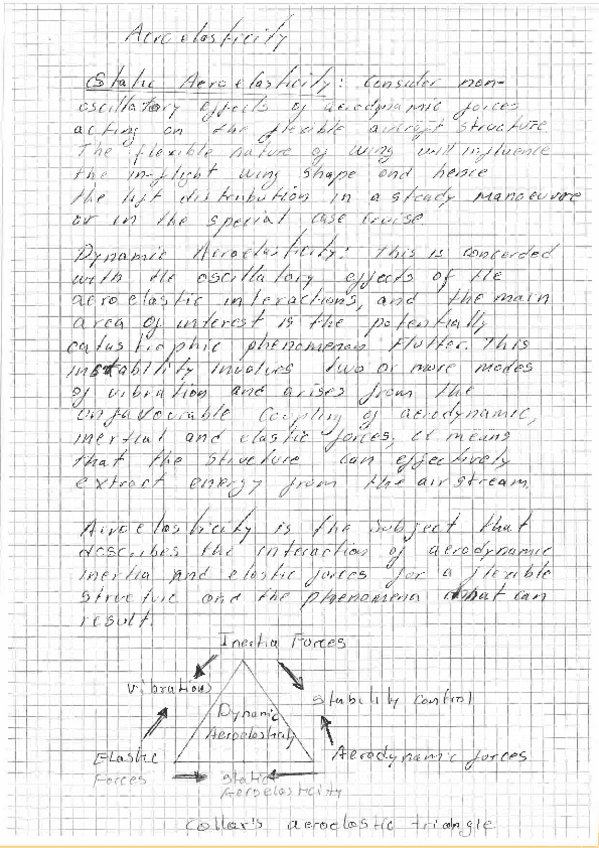 Aeroelasticity
Static Aeroelasticity: Consider non-
oscillatory effects of aerodynamic forces
acting on the flexible aircraft structure
The flexible nature of wing will influence
the in-flight wing shape and hence
the lift distribution in a steady manoeuvre
or in the special case cruise
Dynamic Aeroelasticity: this is concerded
with the oscillatory effects of the
aeroelastic interactions, and the main
area of interest is the potentially
catastrophic phenomenon flutter. This
instability involves two or more modes
of vibration and arises from the
unfavourable Coupling of aerodynamic,
inertial and elastic forces, it means
that the structure can effectively
extract energy from the airstream.
Airoelasticity is the subject that
describes the interaction of aerodynamic
inertia and elastic forces for a flexible
structure and the phenomena that can
result.
Inertia Forces
Vibrations
Stability Control
Dynamic
Aeroelasticity
Elastic
Forces
Aerodynamic forces
Static
Aeroelasticity
Collar's aeroelastic triangle